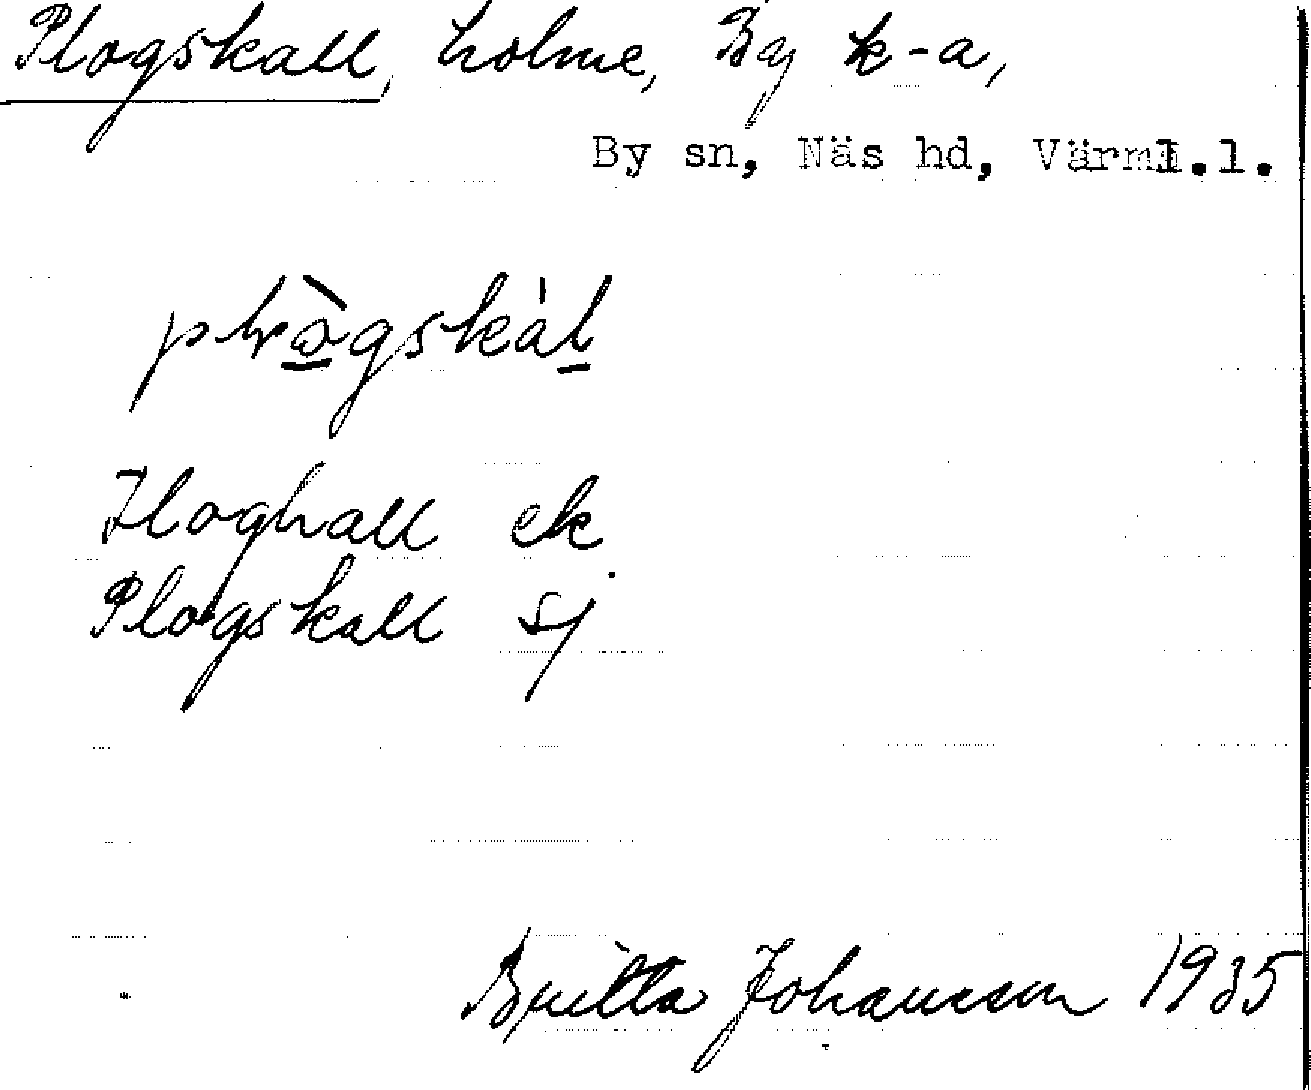 Plogskall, holme, By k-a,
By sn, Näs hd, Värml.l.
Ploghall ek.
Plogskall sj
Britta Johansson 1935